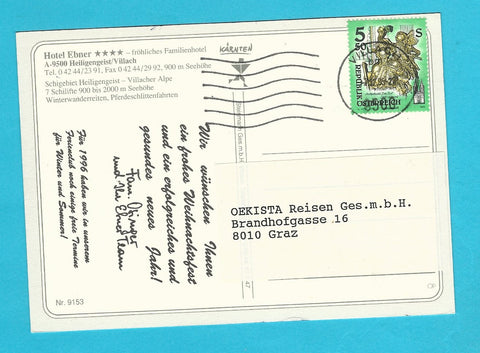 Hotel Ebner ★★★★ – fröhliches Familienhotel
A-9500 Heiligengeist/Villach
Tel. 0 42 44/23 91, Fax 0 42 44/29 92, 900 m Seehöhe
Schigebiet Heiligengeist – Villacher Alpe
7 Schilifte 900 bis 2000 m Seehöhe
Winterwanderreiten, Pferdeschlittenfahrten
KÄRNTEN
5 50 S
REPUBLIK ÖSTERREICH
Wir wünschen Ihnen
ein frohes Weihnachtsfest
und ein erfolgreiches und
gesundes neues Jahr!
Fam.
und Ihr Ebner Team
Für 1996 haben wir in unserem
Ferienclub noch einige freie Termine
für Winter und Sommer!
OEKISTA Reisen Ges.m.b.H.
Brandhofgasse 16
8010 Graz
Nr. 9153